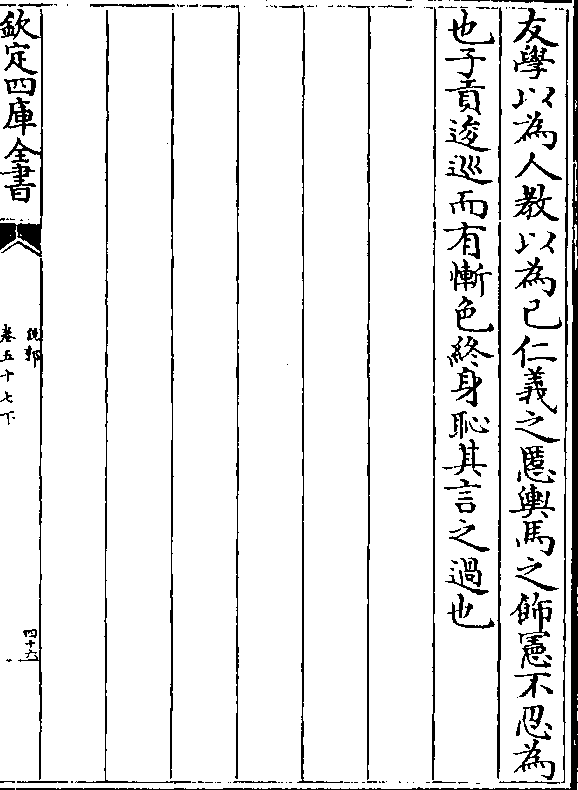 友學以為人教以為已仁義之慝輿馬之飾憲不忍為
也子貢逡巡而有慚色終身恥其言之過也
欽定四庫全書
說郛
卷五十七下
四十六